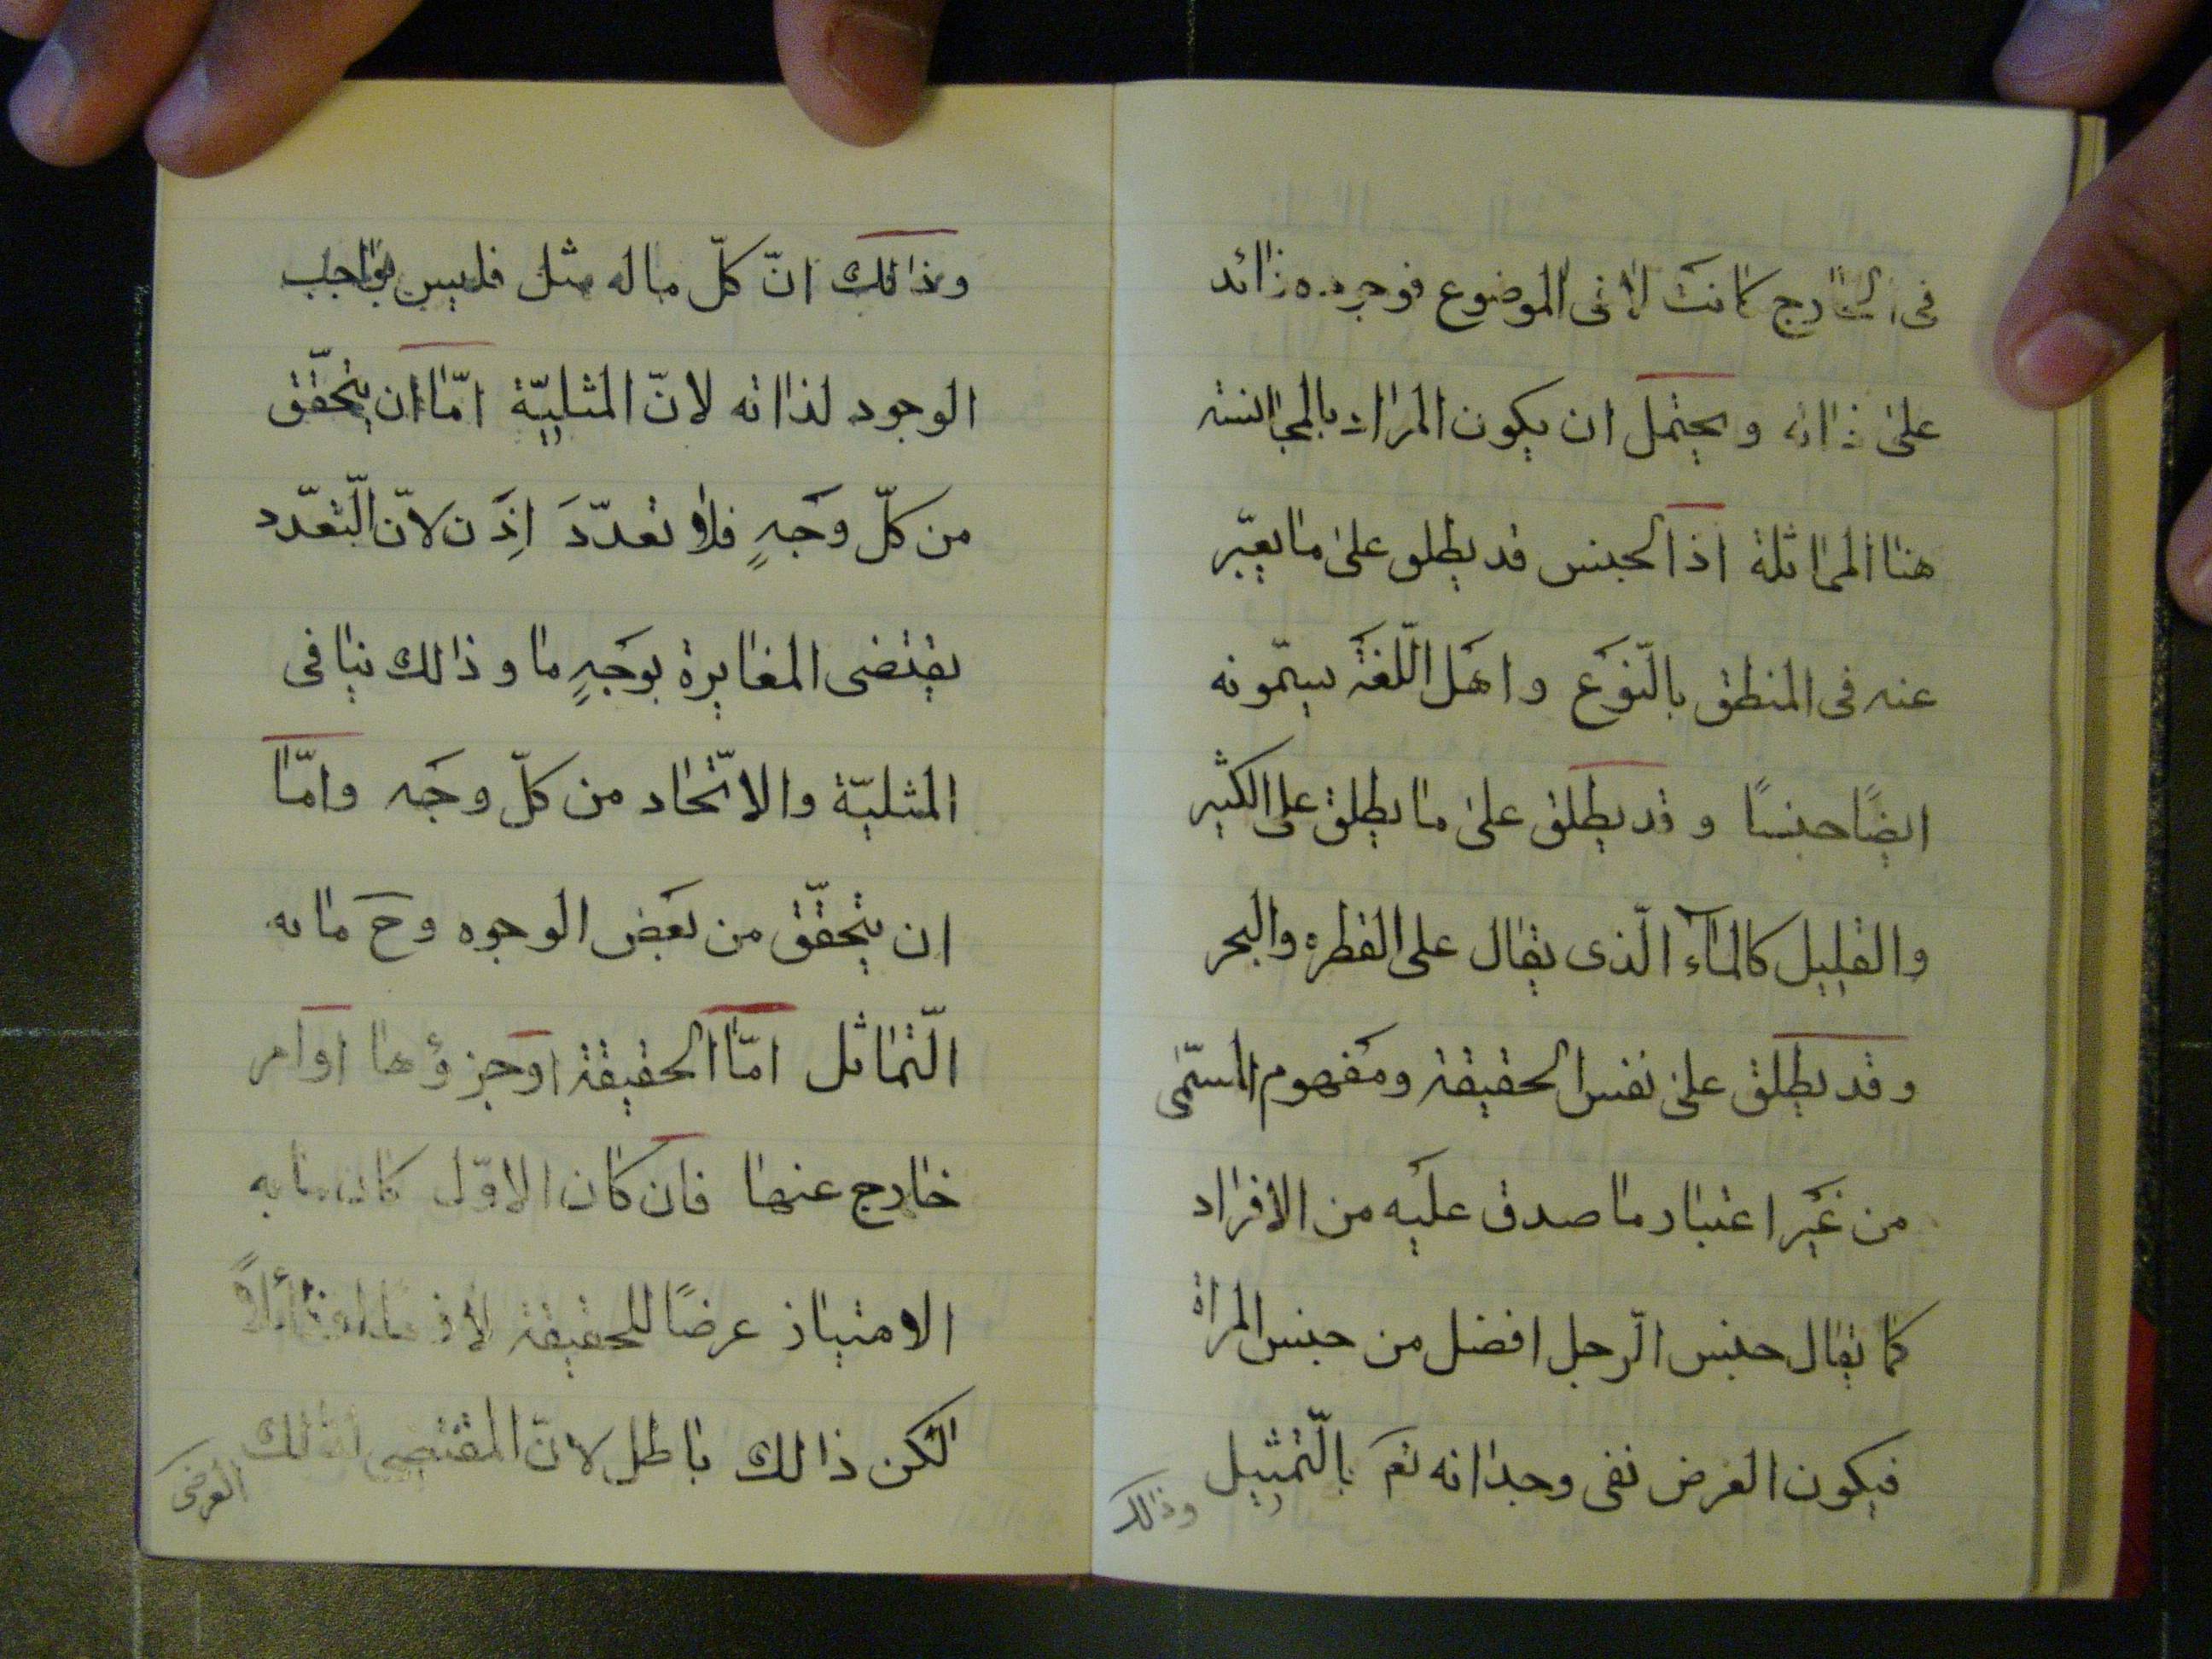 فى الخارج كانت لا فى الموضوع فوجوده زائد
على ذاته ويحتمل ان يكون المراد بالمجانسته
هنا المماثلة اذ الجنس قد يطلق على ما يعبّر
عنه فى المنطق بالنّوع واهل اللّغة يسمّونه
ايضًا جنسًا وقد يطلق على ما يطلق على الكثير
والقليل كالمآء الّذى يقال على القطره والبحر
وقد يطلق على نفس الحقيقة ومفهوم المسمّى
من غير اعتبار ما صدق عليه من الافراد
كما يقال جنس الرّجل افضل من جنس المراة
فيكون الغرض نفى وحداانه تع بالتّمثيل
وذالك
وذالك انّ كلّ ماله مثل فليس بواجب
الوجود لذاته لانّ المثليّة امّا ان يتحقّق
من كلّ وجهٍ فلا تعدّدَ اِذَن لانّ التّعدّد
يقتضى المغايرة بوجهٍ ما وذالك ينافى
المثليّة والاتّحاد من كلّ وجه وامّا
ان يتحقّق من بعض الوجوه وح ما به
التّماثل امّا الحقيقة او جزؤها او امر
خارج عنها فان كان الاوّل كان ما به
الامتياز عرضًا للحقيقة لازمًا او زائلاً
لكن ذالك باطل لانّ المقتضى لذالك
العرضى